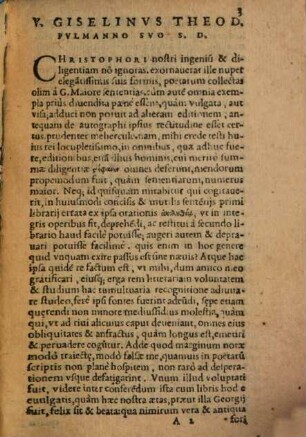 3
V. GISELINVS THEOD.
PVLMANNO SVO S. D.
CHRISTOPHORI nostri ingeniũ & di-
ligentiam nō ignoras. exornauerat ille nuper
elegãtissimis suis formis, poëtarum collectas
olim à G. Maiore sententias. cùm autē omnia exem-
pla priùs diuendita pænè essent, quàm vulgata, aut
visa, adduci non potuit ad aliam editionem, ante-
quam de autographi ipsius rectitudine esset cer-
tus: prudenter mehercule. etiam, mihi crede testi huius
rei locupletissimo, in omnibus, quæ adhuc fue-
re, editionibus, etsi illius hominis, cui meritò sum-
mæ diligentiæ omnes deferunt, mendorum
propemodum fuit, quàm sententiarum, numerus
maior. Neq; id quisquam mirabitur qui cogitaue-
rit, in huiusmodi concisis & mutilis sententijs primi
librarij errata ex ipsa orationis vt in in-
tegris operibus fit, deprehēdi, ac restitui à secundo li-
brario haud facilè potuisse; augeri autem & de-
prauari potuisse facilimè. quis enim in hoc genere
quid vnquam exire passus est sine næuis? Atque hac
ipsa quidē re factum est, vt mihi, dum amico meo
gratificari, eiusq; erga rem literariam voluntatem
& studium hac tumultuaria recognitione adiuua-
re studeo, ferè ipsi fontes fuerint adeūdi, sepe etiam
querendi non mediocri molestia, quàm-
ut ad riui alicuius caput deueniant, omnes eius
obliquitates & anfractus, quàm longus est, emetiri
& peruadere cogūtur. Adde quod marginum notæ
modò traiectæ, modò falsæ me, quamuis in poëtarū
scriptis non planè hospitem, non rarò ad despera-
tionem vsque defatigarint. Vnum illud voluptati
fuit, videre inter conferēdum ista cum libris hoc e-
euulgatis, quàm hæc nostra ætas, præut illa Georgij
fuit, felix sit & beata: qua nimirum vera & antiqua
A 2 fori